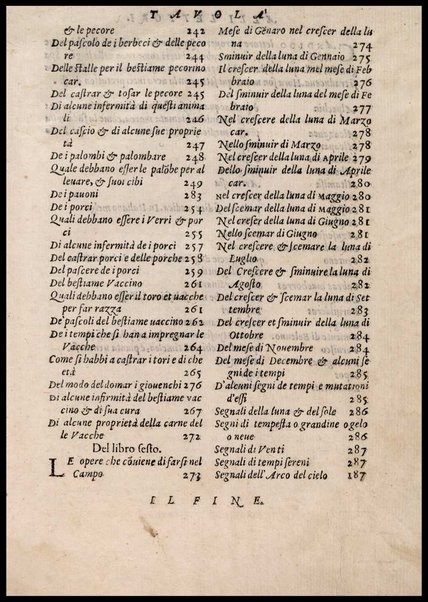 TAVOLA
& le pecore 242
Del pascolo de i berbeci & delle peco
re 244
Delle stalle per il bestiame pecorino
car. 245
Del castrar & tosar le pecore 245
Di alcune infermità di questi anima
li 246
Del cascio & di alcune sue proprie
tà 247
De i palombi & palombare 248
Quale debbano esser le palõbe per al
leuare, & suoi cibi 249
De i pauoni 283
De i porci 254
Quali debbano essere i Verri & por
ci 255
Di alcune infermità de i porci 257
Del castrar porci e delle porche 258
Del pascere de i porci 259
Del bestiame Vaccino 261
Quali debbano esser il toro et uacche
per far razza 261
De' pascoli del bestiame uaccino 262
De i tempi che si han impregnar le
Vacche 264
Come si habbi a castrar i tori e di che
età 265
Del modo del domar i giouenchi 276
Di alcune infirmità del bestiame vac
cino & di sua cura 267
Di alcune proprietà della carne del
le Vacche 272
Del libro sesto.
LE opere che cõuiene di farsi nel
Campo 273
Mese di Genaro nel crescer della lu
na 274
Sminuir della luna di Gennaio 275
Il crescer della luna nel mese di Feb
braio 276
Del sminuir della luna del mese di Fe
braio 277
Nel crescere della luna di Marzo
car. 278
Nello sminuir di Marzo 278
Nel crescer della luna di Aprile 279
Dello sminuir della luna di Aprile
car. 280
Nel crescer della luna di Maggio 280
Del scemar della luna di Maggio 281
Nel crescer della luna di Giugno 281
Nello scemar di Giugno 281
Nel crescere & scemare la luna di
Luglio 282
Del Crescere & sminuire la luna di
Agosto 282
Del crescer & scemar la luna di Set
tembre 283
Del crescer et sminuir della luna di
Ottobre 284
Del mese di Nouembre 284
Del mese di Decembre & alcuni se
gni de i tempi 285
D'alcuni segni de tempi e mutationi
d'essi 285
Segnali della luna & del sole 286
Segni di tempesta o grandine o gelo
o neue 286
Segnali di Venti 287
Segnali di tempi sereni 287
Segnali dell'Arco del cielo 187
IL FINE.